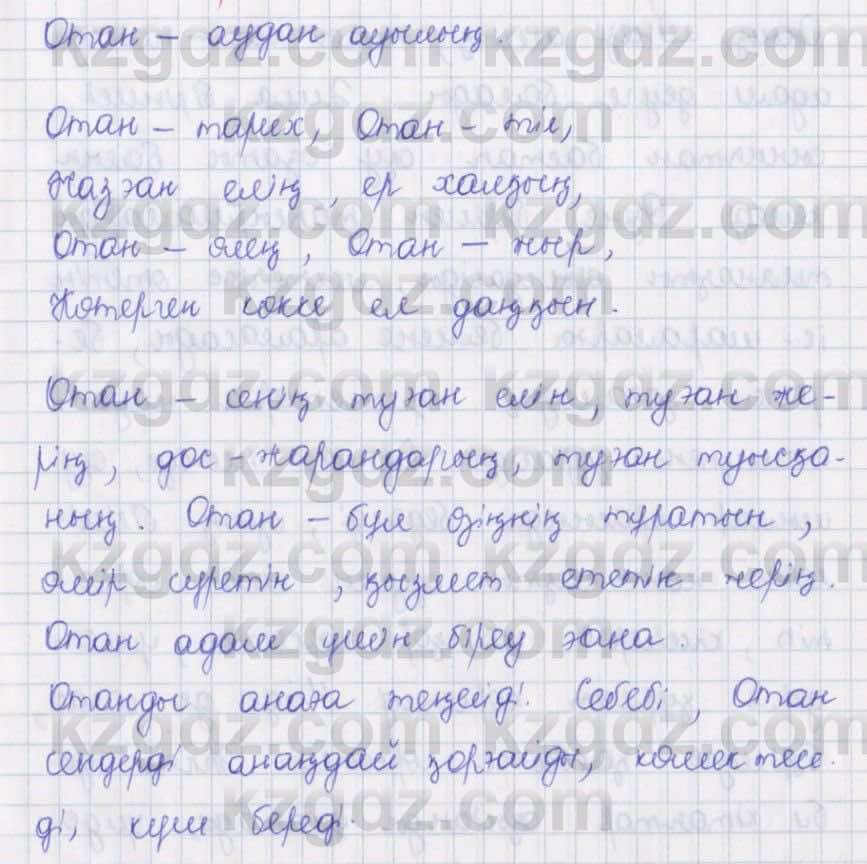 Отан – аудан ауылың.
Отан – тарих, Отан – тіл,
Жазған елің, ер халқың,
Отан – өлең, Отан – жыр,
Көтерген көкке ел даңқын.
Отан – сенің туған елің, туған же-
рің, дос-жарандарың, туған туысқа-
ның. Отан – бұл өзіңнің тұратын,
өмір сүретін, қызмет ететін жерің.
Отан адам үшін біреу ғана.
Отанды анаға теңейді. Себебі, Отан
сендерді анаңдай қорғайды, көмектесе-
ді, күш береді.
kzgdz.com